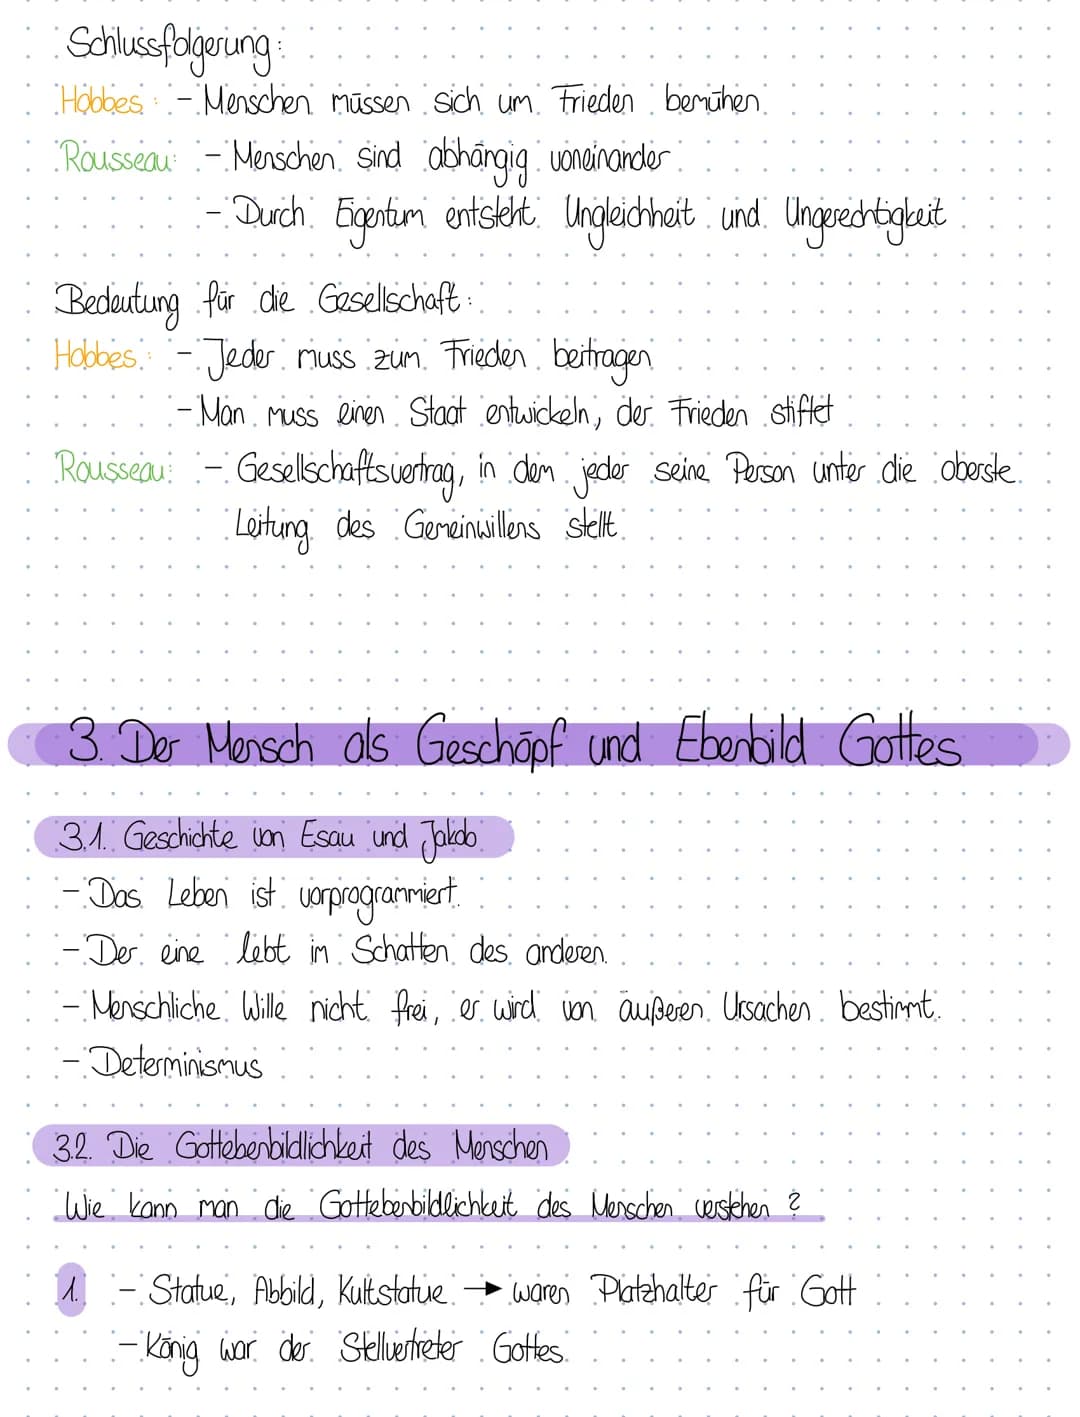 Schlussfolgerung:
Hobbes: - Menschen müssen sich um Frieden bemühen.
Rousseau: - Menschen sind abhängig voneinander
- Durch Eigentum entsteht Ungleichheit und Ungerechtigkeit
Bedeutung für die Gesellschaft:
Hobbes: - Jeder muss zum Frieden beitragen
- Man muss einen Staat entwickeln, der Frieden stiftet
Rousseau: - Gesellschaftsvertrag, in dem jeder seine Person unter die oberste
Leitung des Gemeinwillens stellt
3. Der Mensch als Geschöpf und Ebenbild Gottes
3.1. Geschichte von Esau und Jakob
- Das Leben ist vorprogrammiert.
- Der eine lebt im Schatten des anderen.
- Menschliche Wille nicht frei, er wird von äußeren Ursachen bestimmt.
- Determinismus
3.2. Die Gottebenbildlichkeit des Menschen
Wie kann man die Gottebenbildlichkeit des Menschen verstehen?
1. - Statue, Abbild, Kultstatue → waren Platzhalter für Gott
- König war der Stellvertreter Gottes.